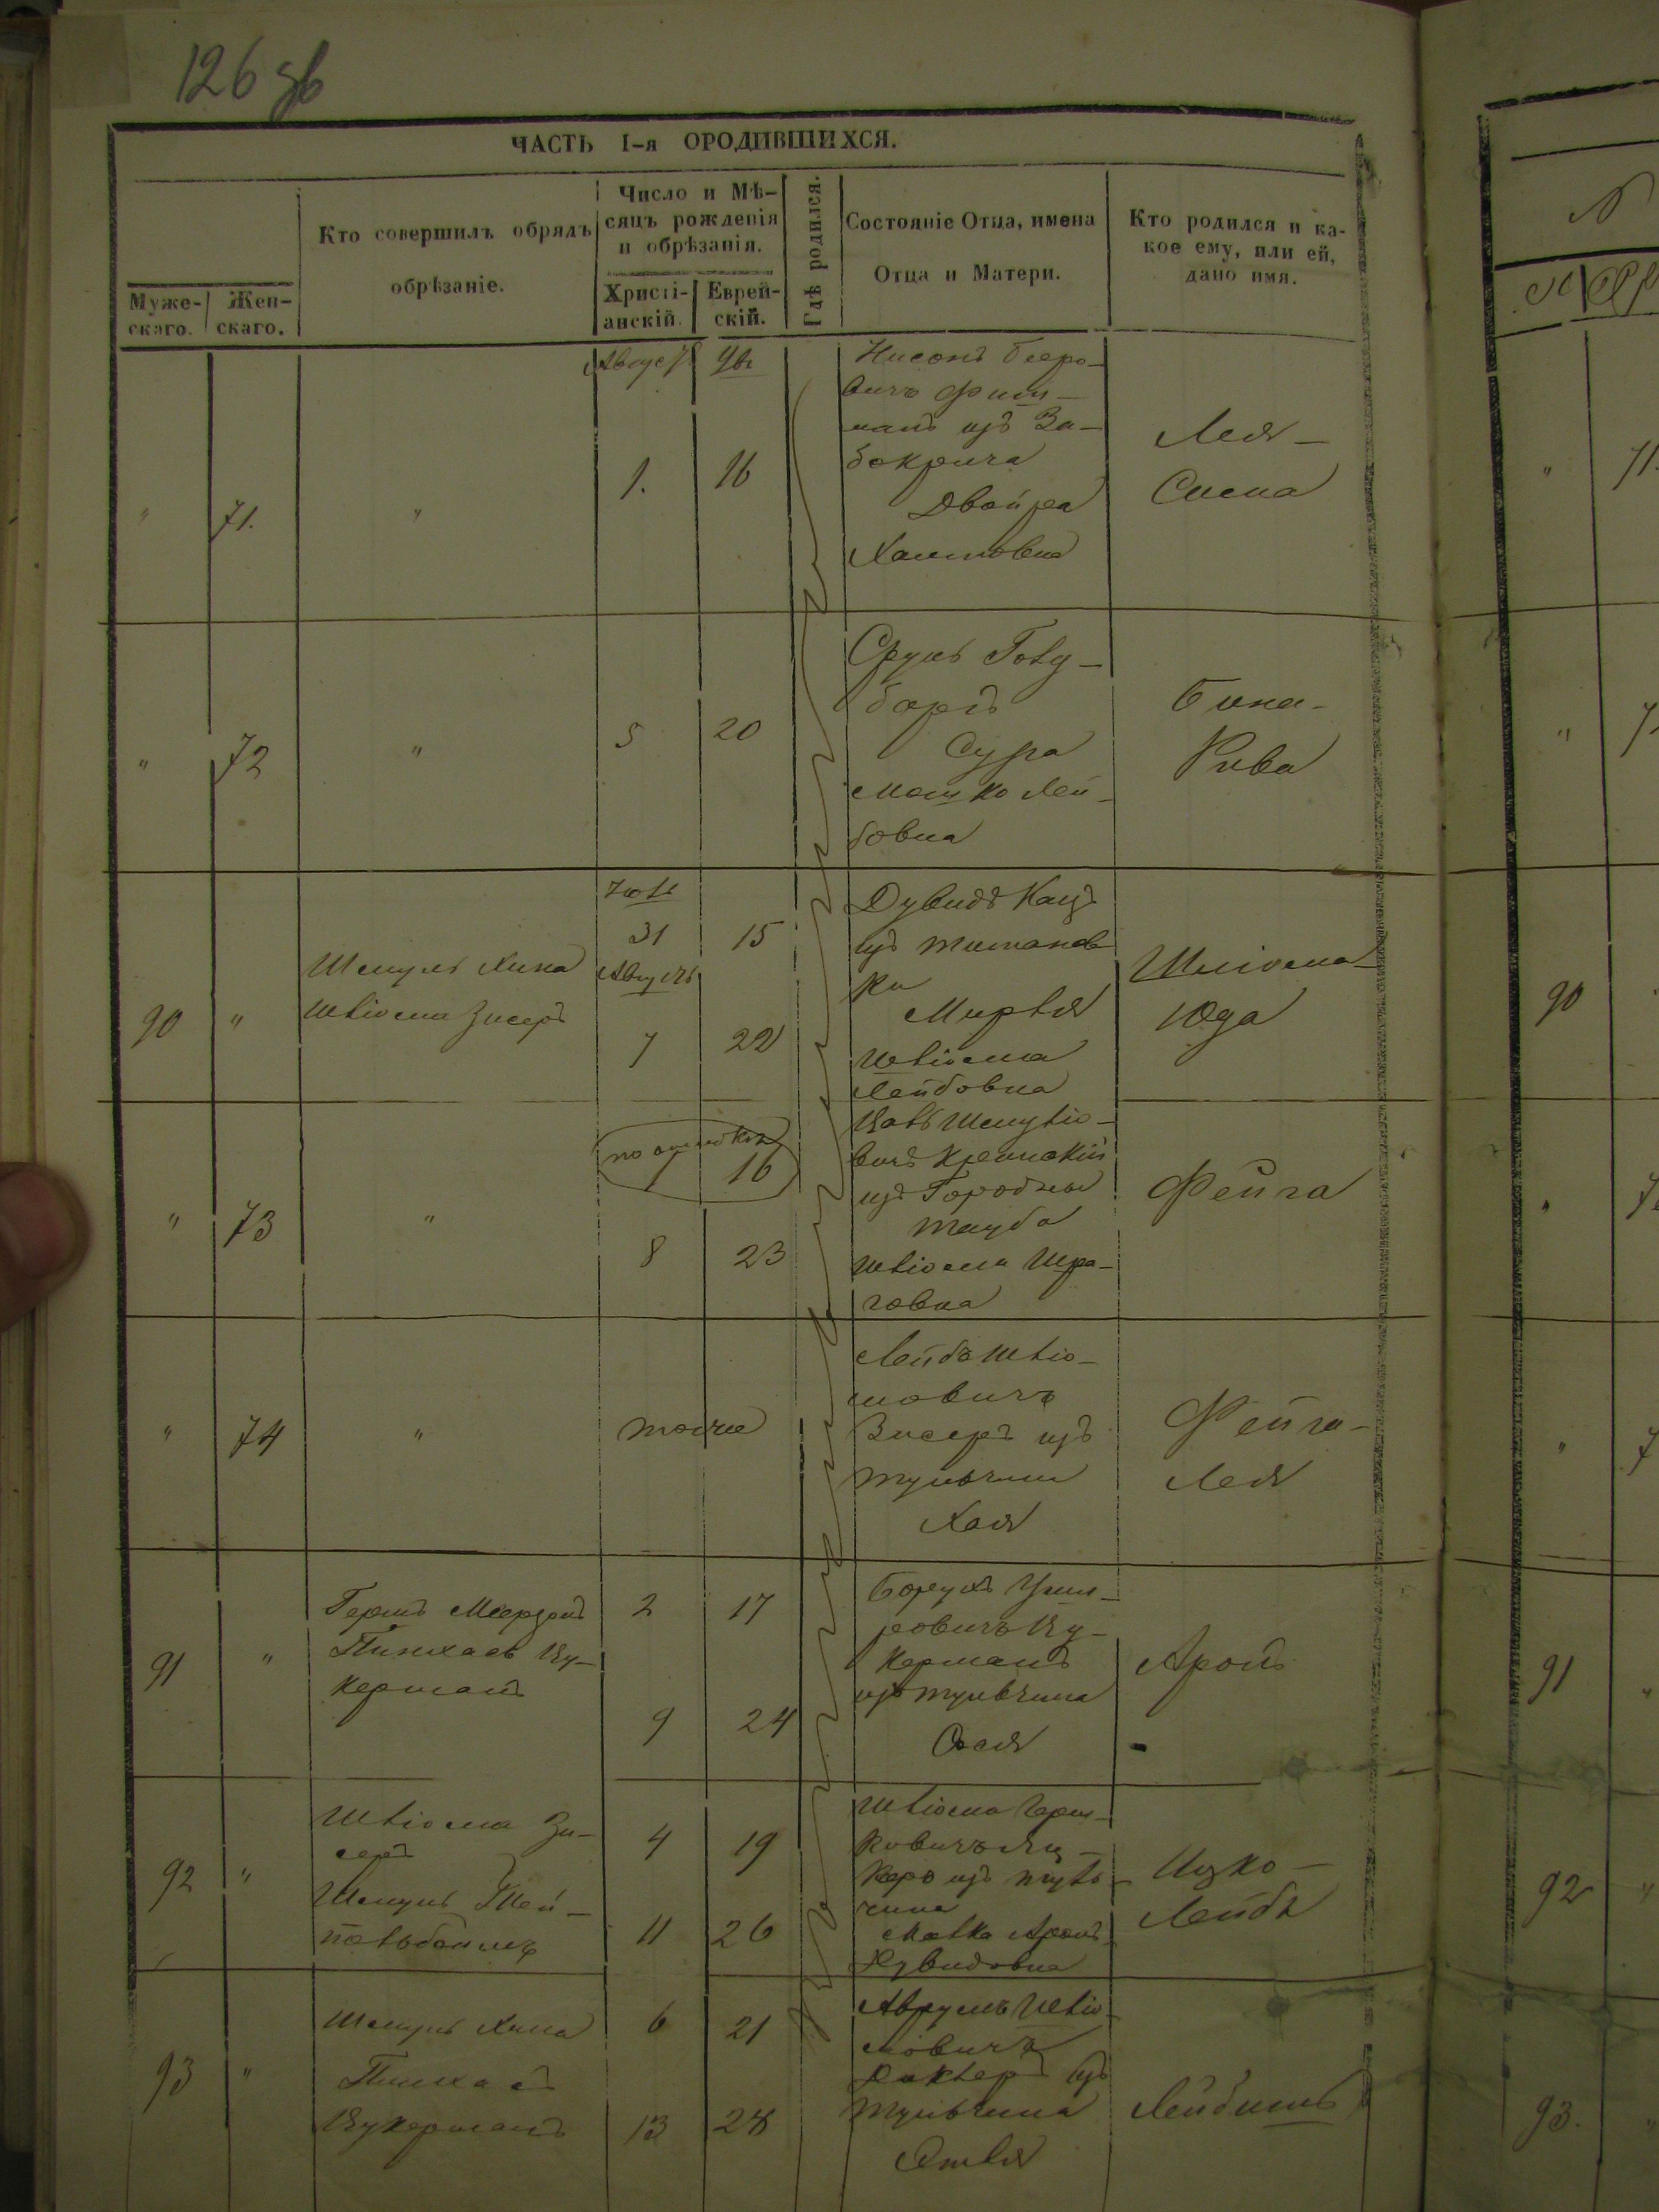 126 об
ЧАСТЬ I-я ОРОДИВШИХСЯ.
Муже-
скаго.
Жен-
скаго.
Кто совершилъ обрядъ
обрѣзаніе.
Число и Мѣ-
сяцъ рожденія
и обрѣзанія.
Христі-
анскій.
Еврей-
скій.
Гдѣ родился.
Состояніе Отца, имена
Отца и Матери.
Кто родился и ка-
кое ему, или ей,
дано имя.
"
71.
"
Август
1.
16
Нисонъ Беро-
вичъ Фиш-
манъ изъ За-
бокрича
Двойра
Хаимовна
Лея-
Сима
"
72
"
5
20
Сруль Голд-
бортъ
Сура
Мошко Лей-
бовна
Бина-
Рива
90
"
Шмуль Хина
Шліома Зисеръ
Іюль
31
15
Августъ
7
22
Дувидъ Кацъ
изъ Тимановъ
ки
Мирля
Шліома
Лейбовна
Шліома
Юда
"
73
"
по ошибки
1
16
8
23
Шмуліо-
вичъ
изъ Городни
Тауба
Шліома Шра-
говна
Фейга
"
74
"
тоже
Лейбъ Шліо-
мовичъ
Зисеръ изъ
Тульчина
Хая
Фейга-
Лея
91
"
Гершъ Меерзонъ
Пинхасъ Цу-
керманъ
2
17
9
24
Борухъ Ушя-
ровичъ Цу-
керманъ
изъ Тульчина
Аронъ
92
"
Шліома Зи-
серъ
Шмуль Тей-
4
19
11
26
Шліома Герш-
ковичъ
изъ Туль-
чина
Малка Аронъ
Дувидовна
Ицко-
Лейбъ
93
"
Шмуль Хина
Пинхасъ
Цукерманъ
6
21
13
28
Аврумъ Шліо-
мовичъ
изъ
Тульчина
Этля
Лейбишъ
71.
"
"
90
"
"
91
"
92
"
93.
"